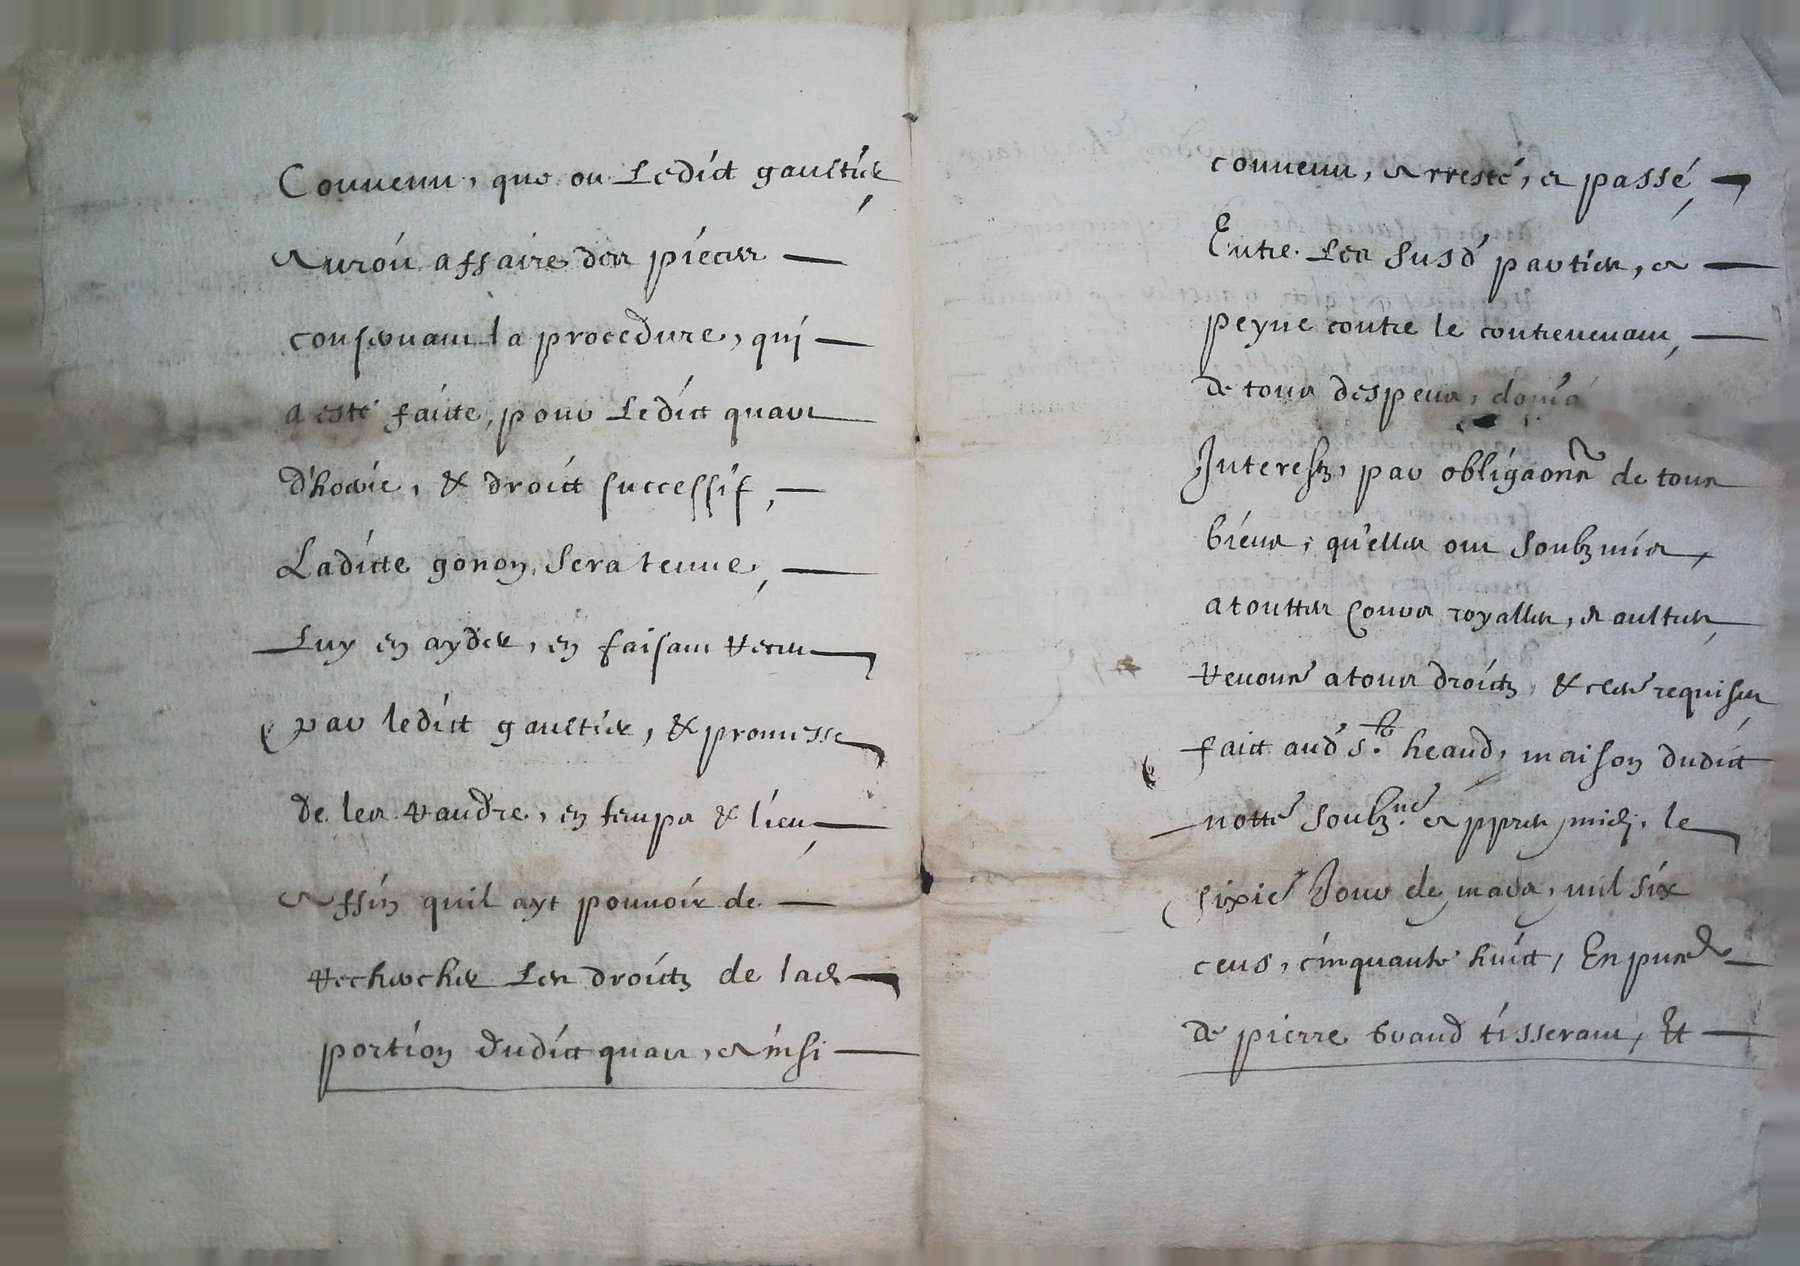 Convenu, que ou Ledict gaultier,
Auroit affaire des pieces —
conservant la procedure, quj —
a esté faicte, pour Ledict quart
d'hoirie, & droict successif, —
Ladicte gonon, sera tenue, —
Luy en ayder, en faisant receu
par ledict gaultier, & promesse
de les randre, en temps & lieu,
Affin quil ayt pouvoir de —
rechercher Les droictz de lad —
portion dudict quart, Ainsi —
convenu, Arresté, et passé,
Entre Les susd parties, a —
peyne contre le contrevenant, —
de tous despens,
Interestz, par obligaons de tous
biens, qu'elles ont soubzmis,
a touttes cours royalles, et aultres,
Renons a tous droictz, & cler requises
faict aud st heand, maison dudict
notre soubzne appres midj, le
sixie Jour de mars, mil six
cens, cinquante huict, En pnce
de pierre tisserant, Et —